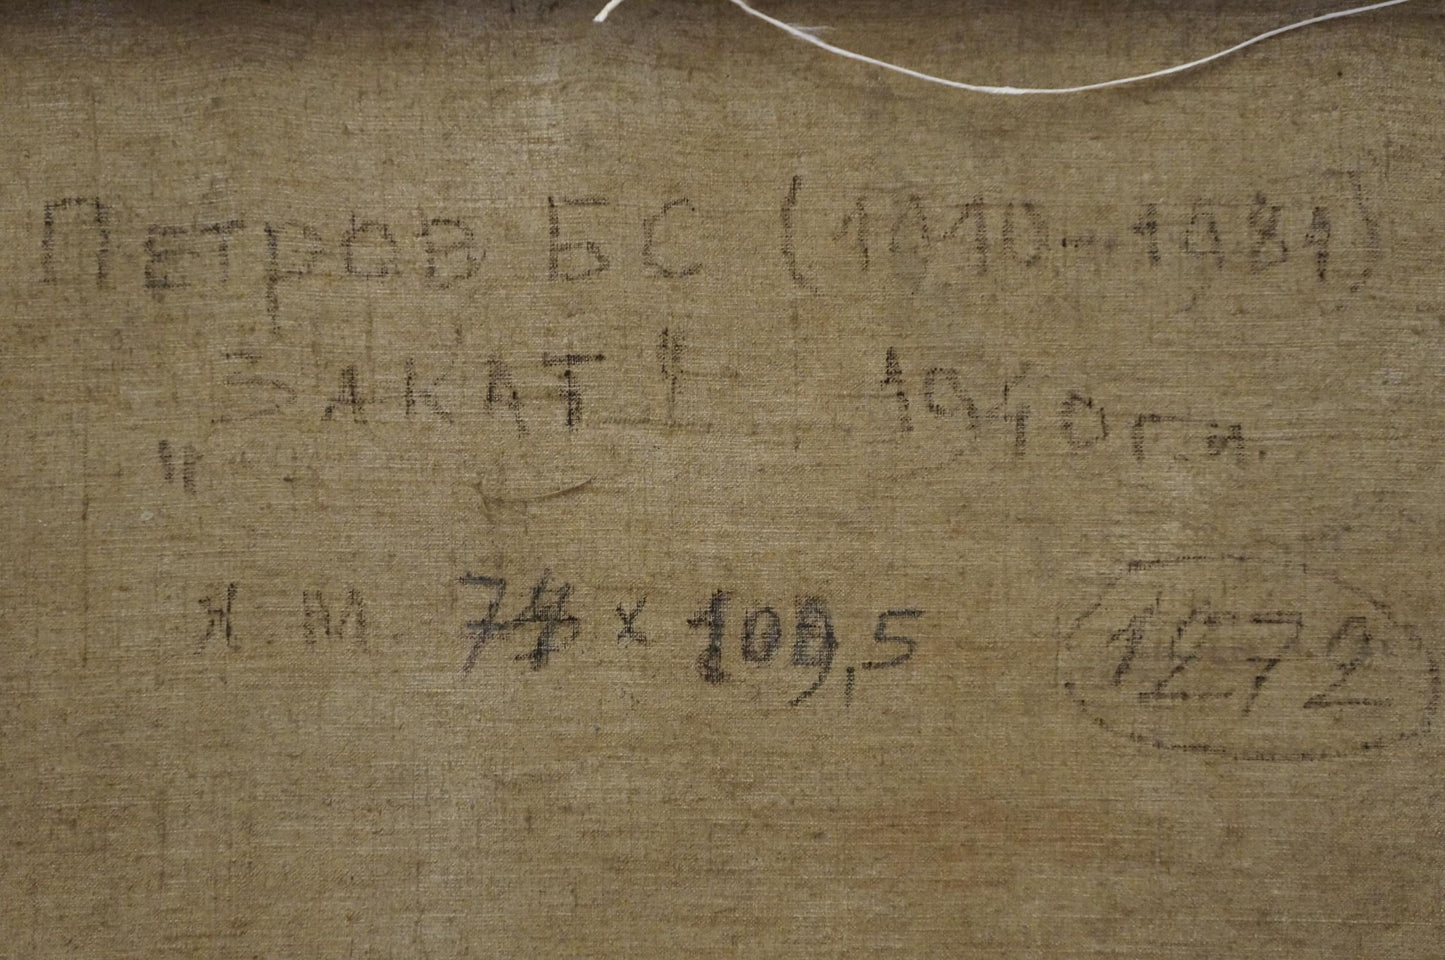 Петров БС (1910-1981)
"ЗАКАТ" 1940 г.и.
х м 74 x 109,5
1272